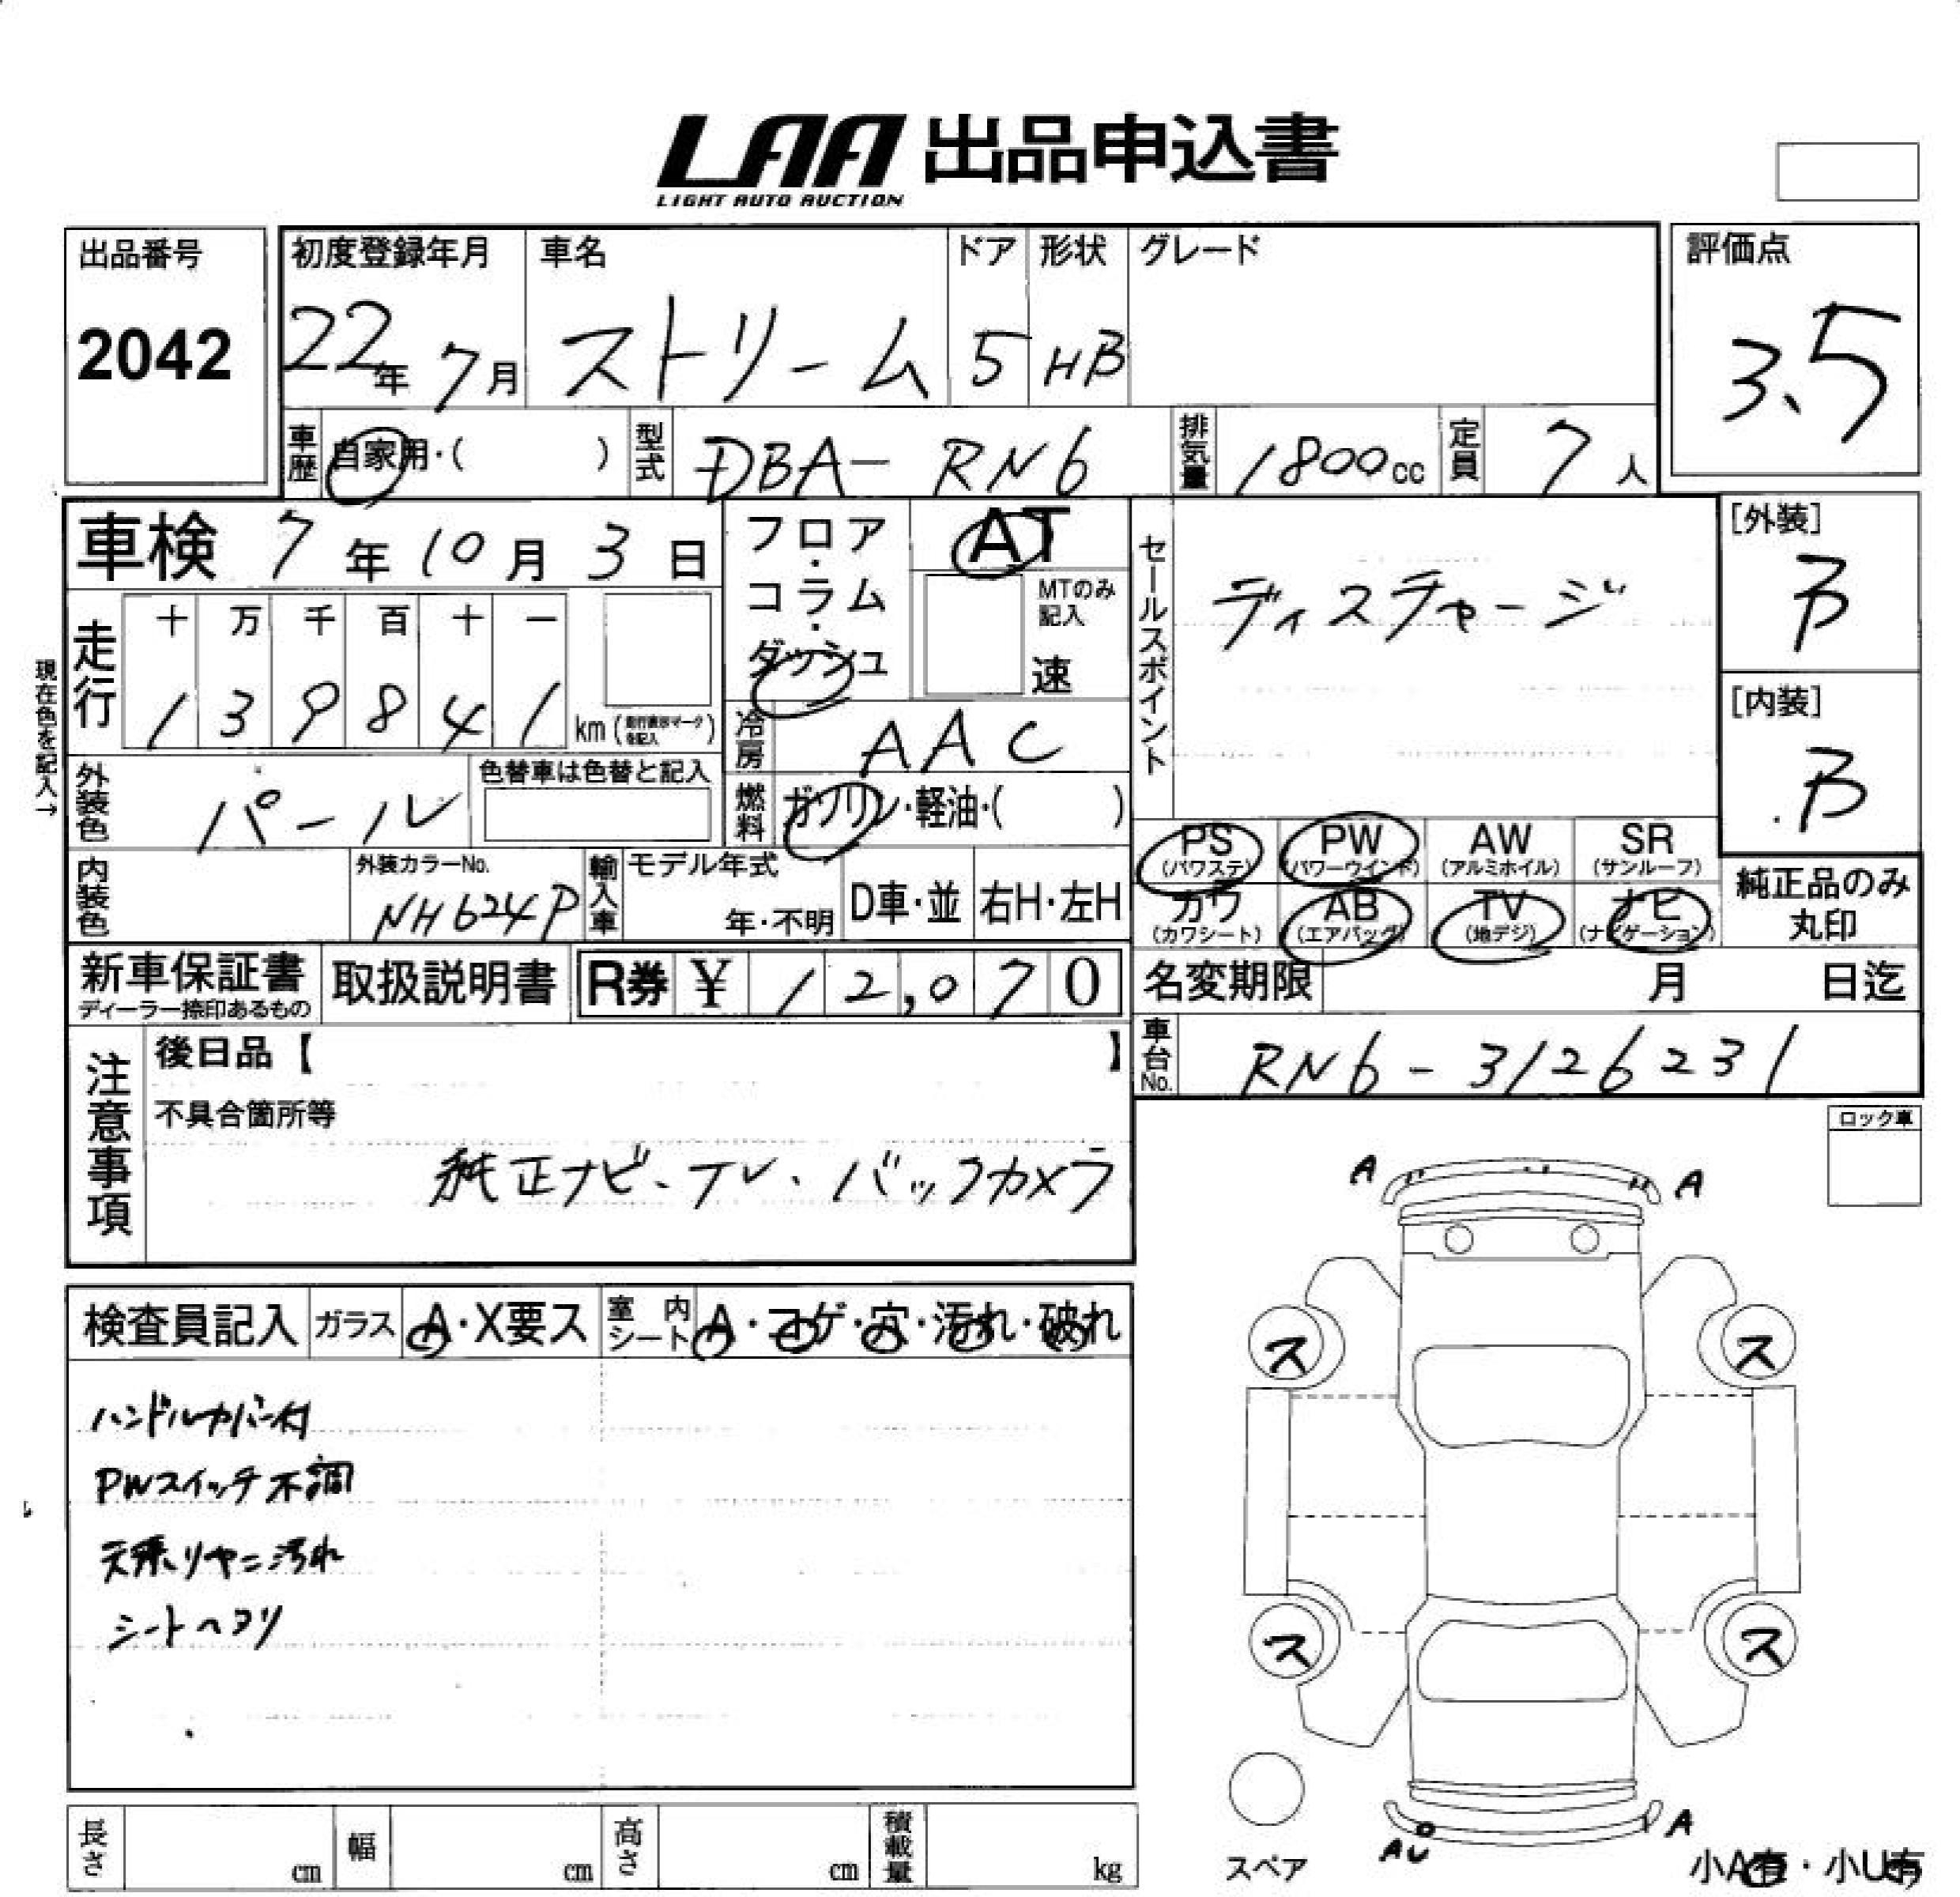 LAA 出品申込書
LIGHT AUTO AUCTION
出品番号
2042
初度登録年月
22年 7月
車名
ストリーム
ドア
5
形状
HB
グレード
評価点
3.5
車歴
自家用・( )
型式
DBA-RN6
排気量
1800cc
定員
7人
車検 7年10月3日
フロア・コラム・ダッシュ
AT
MTのみ記入
速
セールスポイント
ディスチャージ
[外装]
B
[内装]
B
現在色を記入→
走行
十 万 千 百 十 一
1 3 9 8 4 1 km (走行表示マークを記入)
冷房
AAC
外装色
パール
色替車は色替と記入
燃料
ガソリン・軽油・( )
PS (パワステ)
PW (パワーウインド)
AW (アルミホイル)
SR (サンルーフ)
カワ (カワシート)
AB (エアバッグ)
TV (地デジ)
ナビ (ナビゲーション)
純正品のみ丸印
内装色
外装カラーNo.
NH624P
輸入車
モデル年式
年・不明
D車・並
右H・左H
新車保証書
ディーラー捺印あるもの
取扱説明書
R券 ¥12,070
名変期限 月 日迄
車台No.
RN6-3126231
注意事項
後日品【 】
不具合箇所等
純正ナビ、TV、バックカメラ
ロック車
A A
検査員記入
ガラス
A・X要ス
室内シート
A・コゲ・穴・汚れ・破れ
ハンドルカバー付
PWスイッチ不調
天張リヤニ汚れ
シートヘタリ
ス ス
ス ス
スペア
AU A
小A有・小U有
長さ cm
幅 cm
高さ cm
積載量 kg